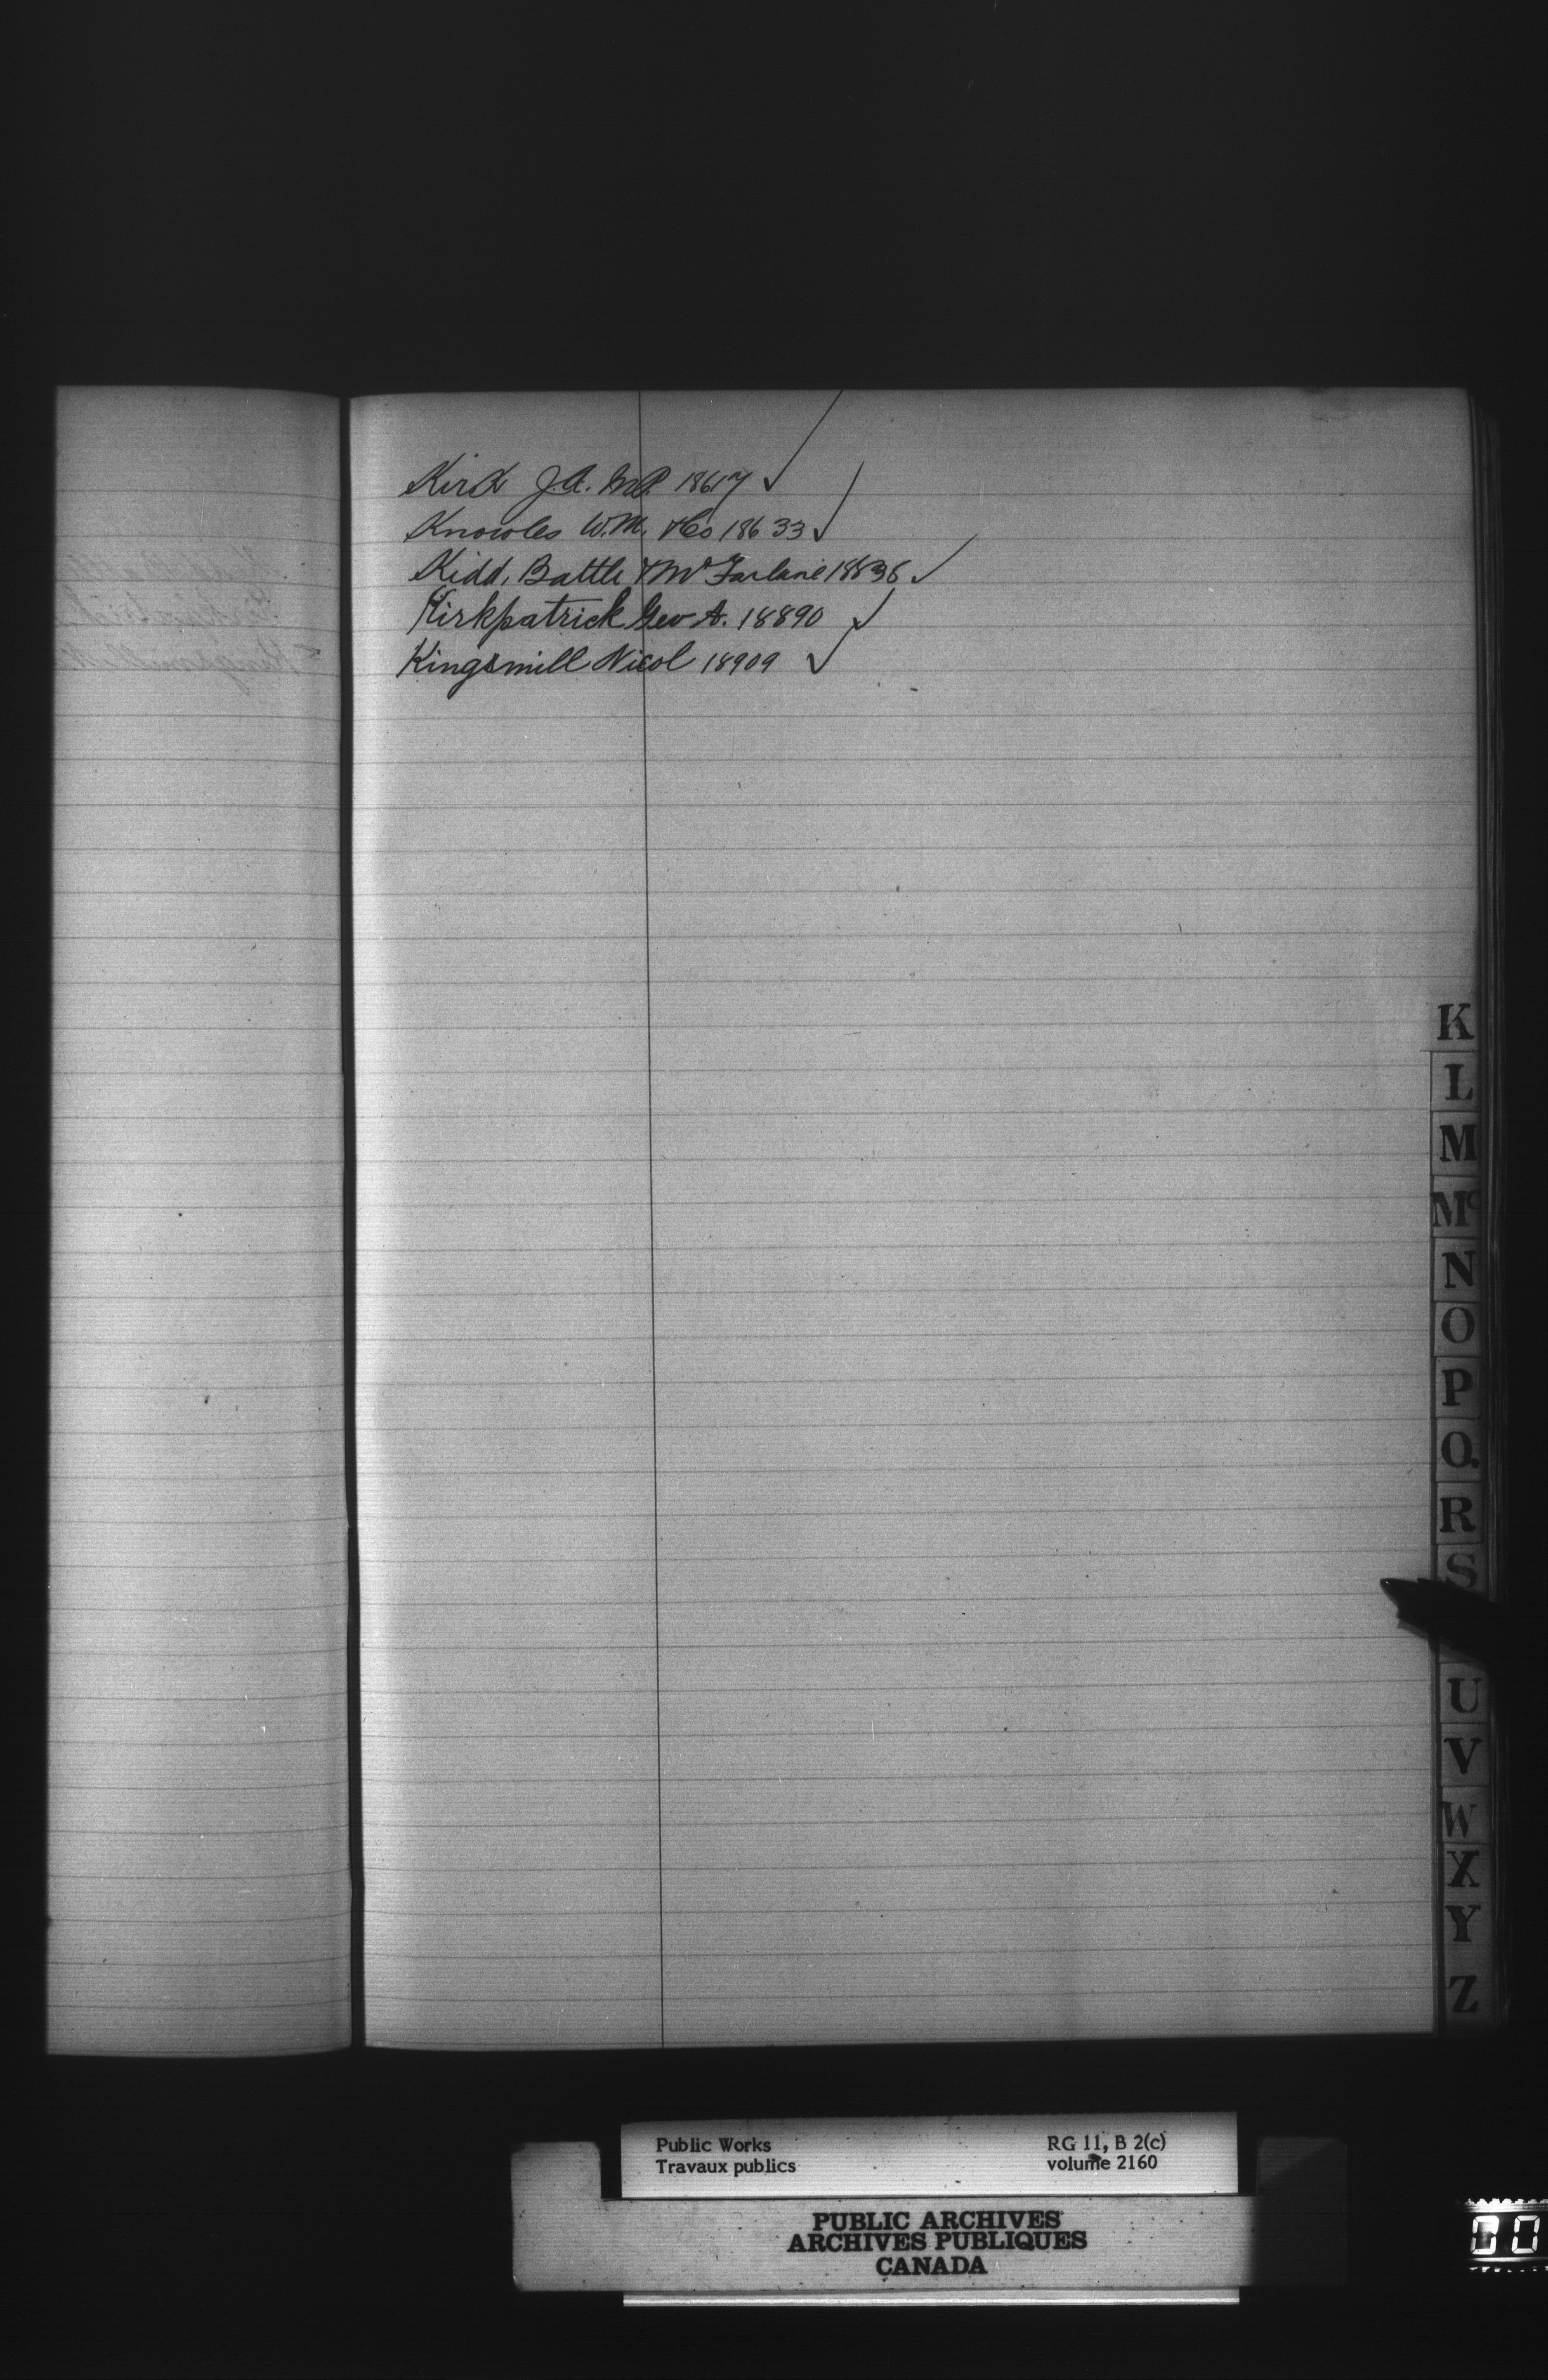 Kirk J.A. M.P. 18617 ✓
Knowles W.M. & Co 18633 ✓
Kidd, Battle & McFarlane 18836 ✓
Kirkpatrick Geo A. 18890 ✓
Kingsmill Nicol 18909 ✓
K
L
M
Mc
N
O
P
Q
R
S
U
V
W
X
Y
Z
Public Works
Travaux publics
RG 11, B 2(c)
volume 2160
PUBLIC ARCHIVES
ARCHIVES PUBLIQUES
CANADA
00